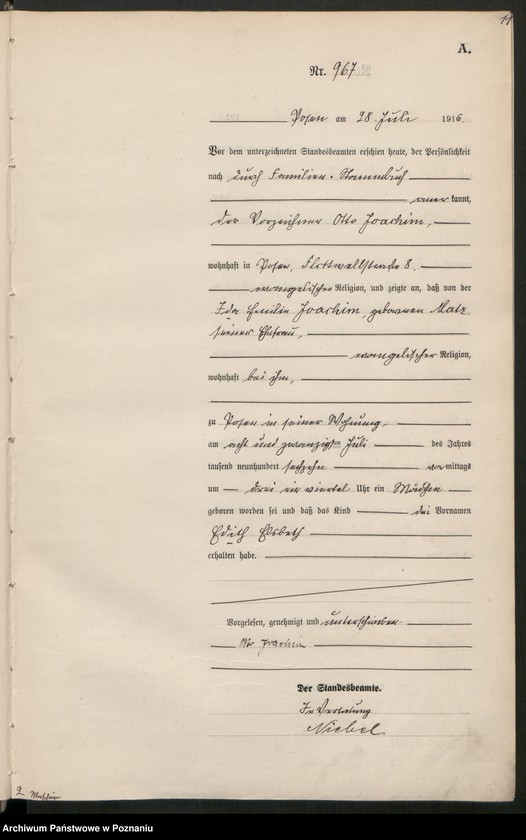 11
A.
Nr. 967
Posen am 28. Juli 1916.
Vor dem unterzeichneten Standesbeamten erschien heute, der Persönlichkeit
nach durch Familien-Stammbuch
anerkannt,
der Vorzeichner Otto Joachim,
wohnhaft in Posen, Flottwellstraße 8,
evangelischer Religion, und zeigte an, daß von der
Ida Emilie Joachim, geborenen Matz,
seiner Ehefrau,
evangelischer Religion,
wohnhaft bei ihm,
zu Posen in seiner Wohnung,
am acht und zwanzigsten Juli des Jahres
tausend neunhundert sechzehn vormittags
um drei ein viertel Uhr ein Mädchen
geboren worden sei und daß das Kind die Vornamen
Edith Elsbeth
erhalten habe.
Vorgelesen, genehmigt und unterschrieben
Otto Joachim
Der Standesbeamte.
In Vertretung
Niebel
2
Archiwum Państwowe w Poznaniu